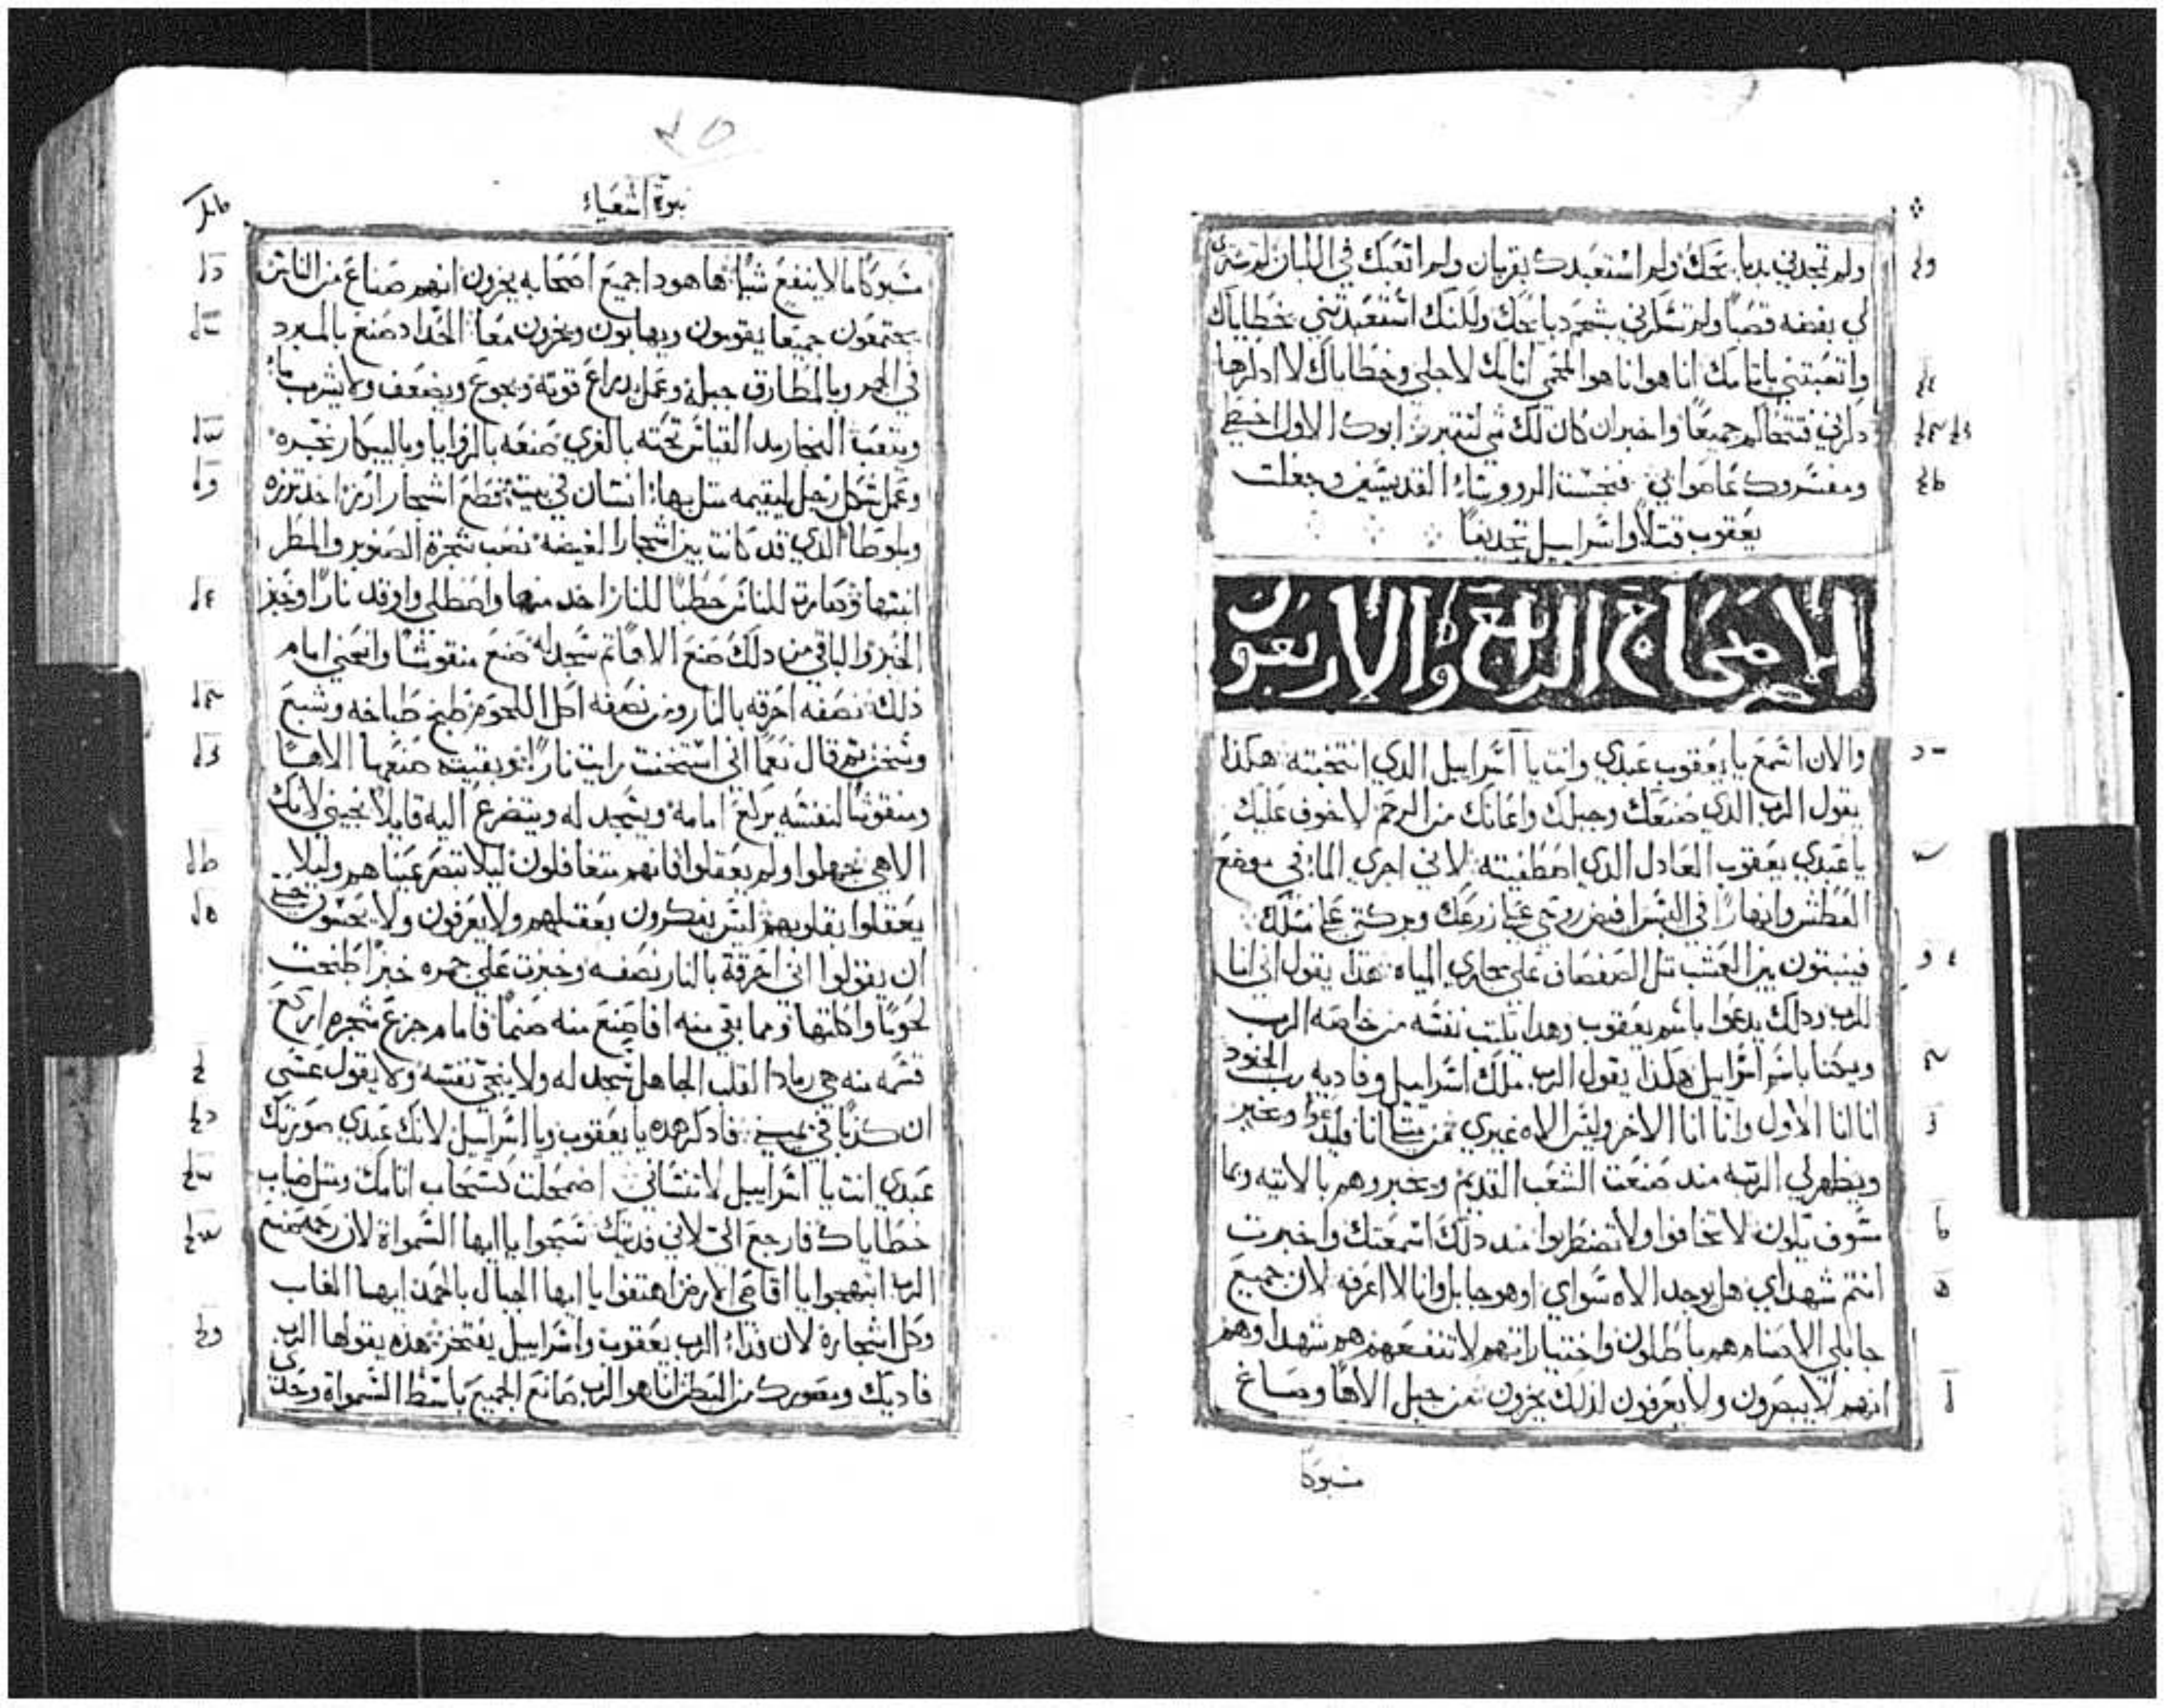 ولم تمجدني بدبايحك ولم استعبدك بقربان ولم اتعبك في اللبان لم تشتري
لي بفضه قصبا ولم تسكرني بشحم دبايحك ولكنك استعبدتني بخطاياك
واتعبتني باتامك انا هو انا هو الممحي اتامك لاجلي وخطاياك لا ادكرها
دكرني فنتحاكم جميعا واخبر ان كان لك شي لتتبرر ابوك الاول اخطي
ومفسروك عاصواني فنجست الروويساء القديسين وجعلت
يعقوب قتلا واسراييل تجديفا
الاصحاح الرابع والاربعون
والان اسمع يا يعقوب عبدي وانت يا اسراييل الدي انتخبته هكذا
يقول الرب الدي صنعك وجبلك واعانك من الرحم لا خوف عليك
يا عبدي يعقوب العادل الدي اصطفيته لاني اجري الماء في موضع
العطش وانهارا في اليبس افيض روحي علي زرعك وبركتي علي نسلك
فينبتون بين العشب متل الصفصاف علي مجاري المياه هدا يقول اني انا
للرب ودلك يدعوا باسم يعقوب وهدا يكتب نفسه من خاصه الرب
ويكنا باسم اسراييل هكذا يقول الرب ملك اسراييل وفاديه رب الجنود
انا انا الاول وانا انا الاخر وليس الاه غيري فمن متلي انا فليدعوا ويخبر
ويظهر لي الرتبه مند صنعت الشعب القديم ويخبروهم بالاتيه وبما
سوف يكون لا تخافوا ولا تضطربوا مند دلك اسمعتك واخبرت
انتم شهداي هل يوجد الاه سواي او هو جابل وانا لا اعرفه لان جميع
جابلي الاصنام هم باطلون واختياراتهم لا تنفعهم هم شهدا وهم
انهم لا يبصرون ولا يعرفون لذلك يخزون من جبل الاها وصاغ
مسبوكا
نبوة اشعياء
مسبوكا ما لا ينفع شيا ها هودا جميع اصحابه يخزون انهم صناع من الناس
يجتمعون جميعا يقومون ويهابون ويخزون معا الحداد صنع بالمبرد
في الجمر وبالمطارق جبله وعمل بدراع قوته ويجوع ويضعف ولا يشرب ماء
ويتعب النجار مد القياس نحته بالغري صنعه بالزوايا وبالبيكار نحته
وعمل شكل رجل ليقيمه متل بهاء انسان في بيت قطع اشجار ارز اخد تزره
وبلوطا الدي قد كانت بين اشجار الغيضه نصب شجرة الصنوبر والمطر
انبتها وصارت للناس حطبا للنار اخد منها واصطلي واوقد نارا وخبز
الخبز والباقي من دلك صنع الاها ثم سجد له صنع منقوشا وانحني امام
ذلك نصفه احرقه بالنار ومن نصفه اكل اللحوم طبخ طباخه وشبع
وسخن ثم قال نعما اني استخنت رايت نارا وبقيته صنعها الاها
ومنقوشا لنفسه يركع امامه ويسجد له ويتضرع اليه قايلا نجيني لانك
الاهي جهلوا ولم يعقلوا فانهم متغافلون ليلا تبصر عيناهم وليلا
يعقلوا بقلوبهم ليس يفكرون بعقلهم ولا يعرفون ولا يحسون حتي
ان يقولوا اني احرقة بالنار نصفه وخبزت علي جمره خبزا طبخت
لحوما واكلتها ومما بقي منه افاصنع منه صنما فامام جزع شجره اركع
قسمه منه هي رمادا القلب الجاهل سجد له ولا ينجي نفسه ولا يقول عسي
ان كدبا في يميني فادكر هده يا يعقوب ويا اسراييل لانك عبدي صورتك
عبدي انت يا اسراييل لا تنساني اضمحلت كسحاب اتامك ومتل ضباب
خطاياك فارجع الي لاني فديتك سبحوا يا ايها السمواة لان رحمه صنع
الرب ابتهجوا يا اقاصي الارض اهتفوا يا ايها الجبال بالحمد ايها الغاب
وكل اشجاره لان فداء الرب يعقوب واسراييل يفتخر هذه يقولها الرب
فاديك ومصورك من البطن انا هو الرب صانع الجميع باسط السمواة وحدي